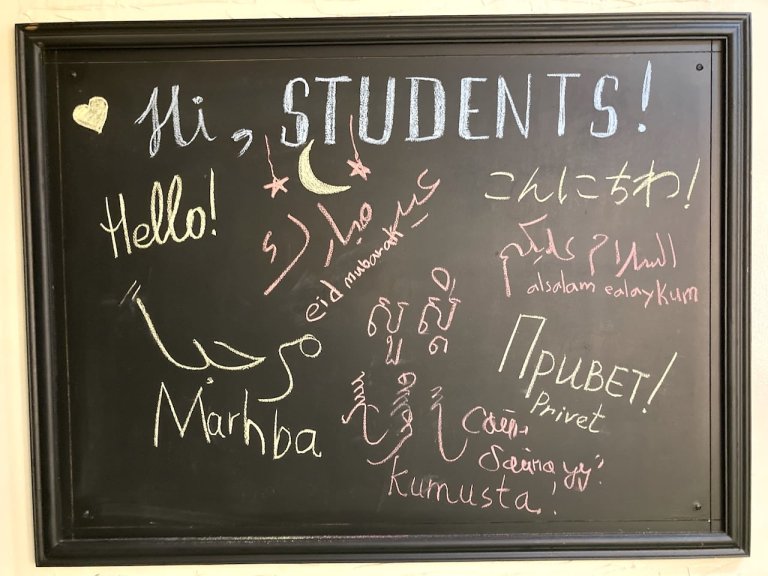 Hi, STUDENTS!
Hello!
عيد مبارك
eid mubarak
こんにちわ!
السلام عليكم
alsalam ealaykum
សួស្តី
مرحباً
Marhba
Привет!
Privet
Kumusta!